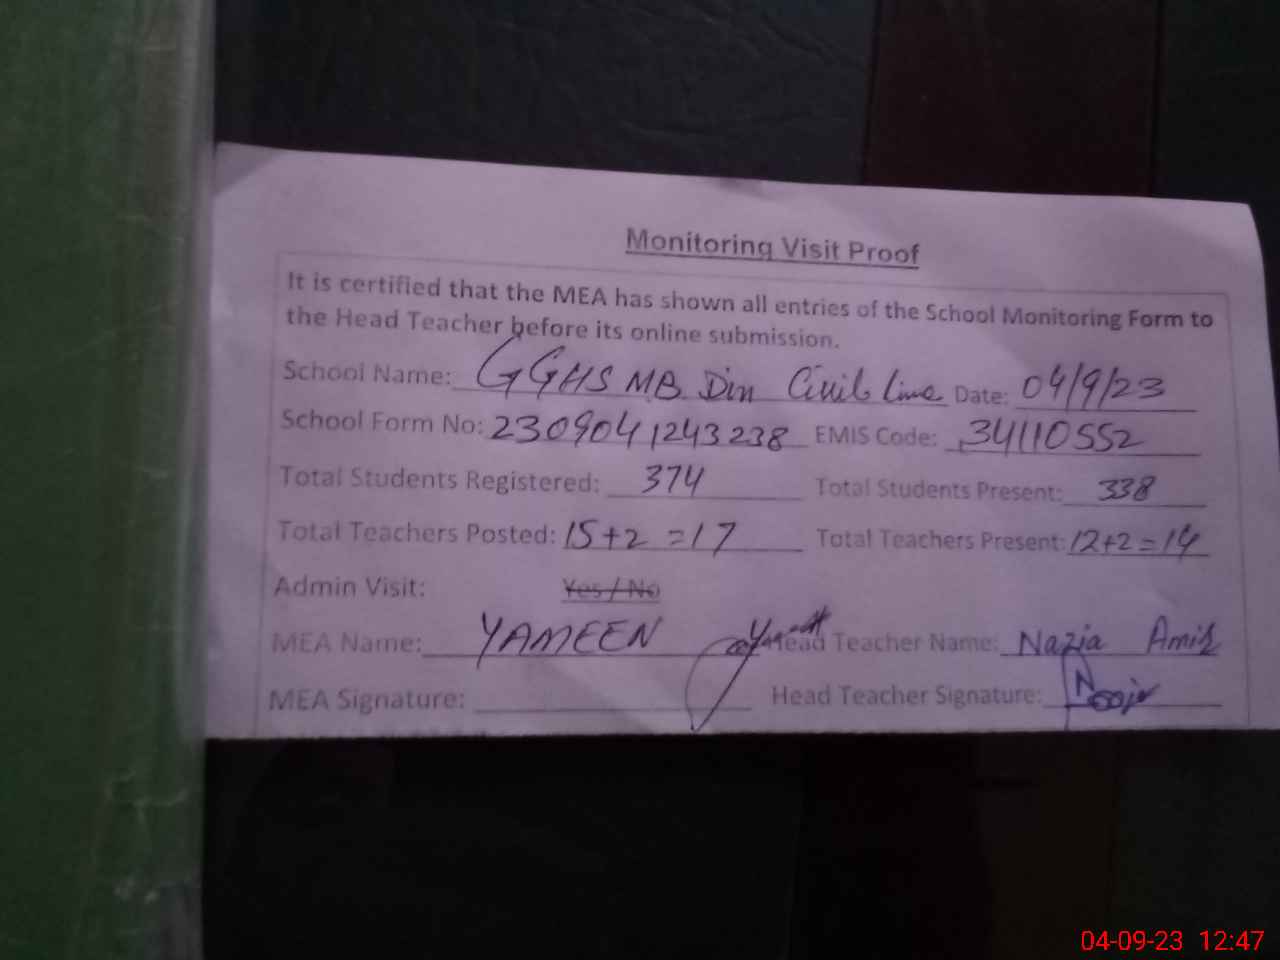 Monitoring Visit Proof
It is certified that the MEA has shown all entries of the School Monitoring Form to
the Head Teacher before its online submission.
School Name: GGHS MB Din Civil Line Date: 04/9/23
School Form No: 2309041243238 EMIS Code: 34110552
Total Students Registered: 374 Total Students Present: 338
Total Teachers Posted: 15+2=17 Total Teachers Present: 12+2=14
Admin Visit: Yes / No
MEA Name: YAMEEN Head Teacher Name: Nazia
MEA Signature: Head Teacher Signature:
04-09-23 12:47